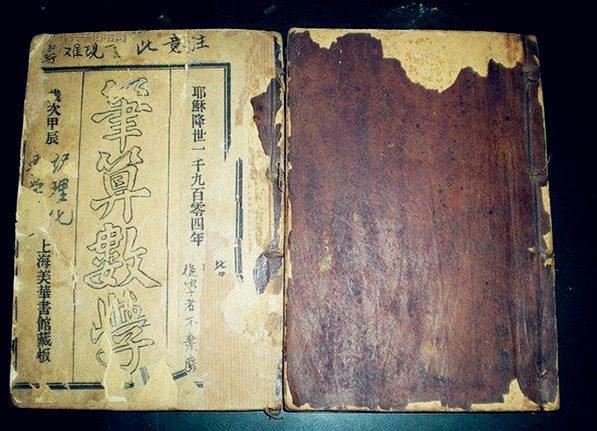 注意此言現难尋
耶穌降世一千九百零四年
筆算數學
歲次甲辰
上海美華書館藏板
後學者不棄